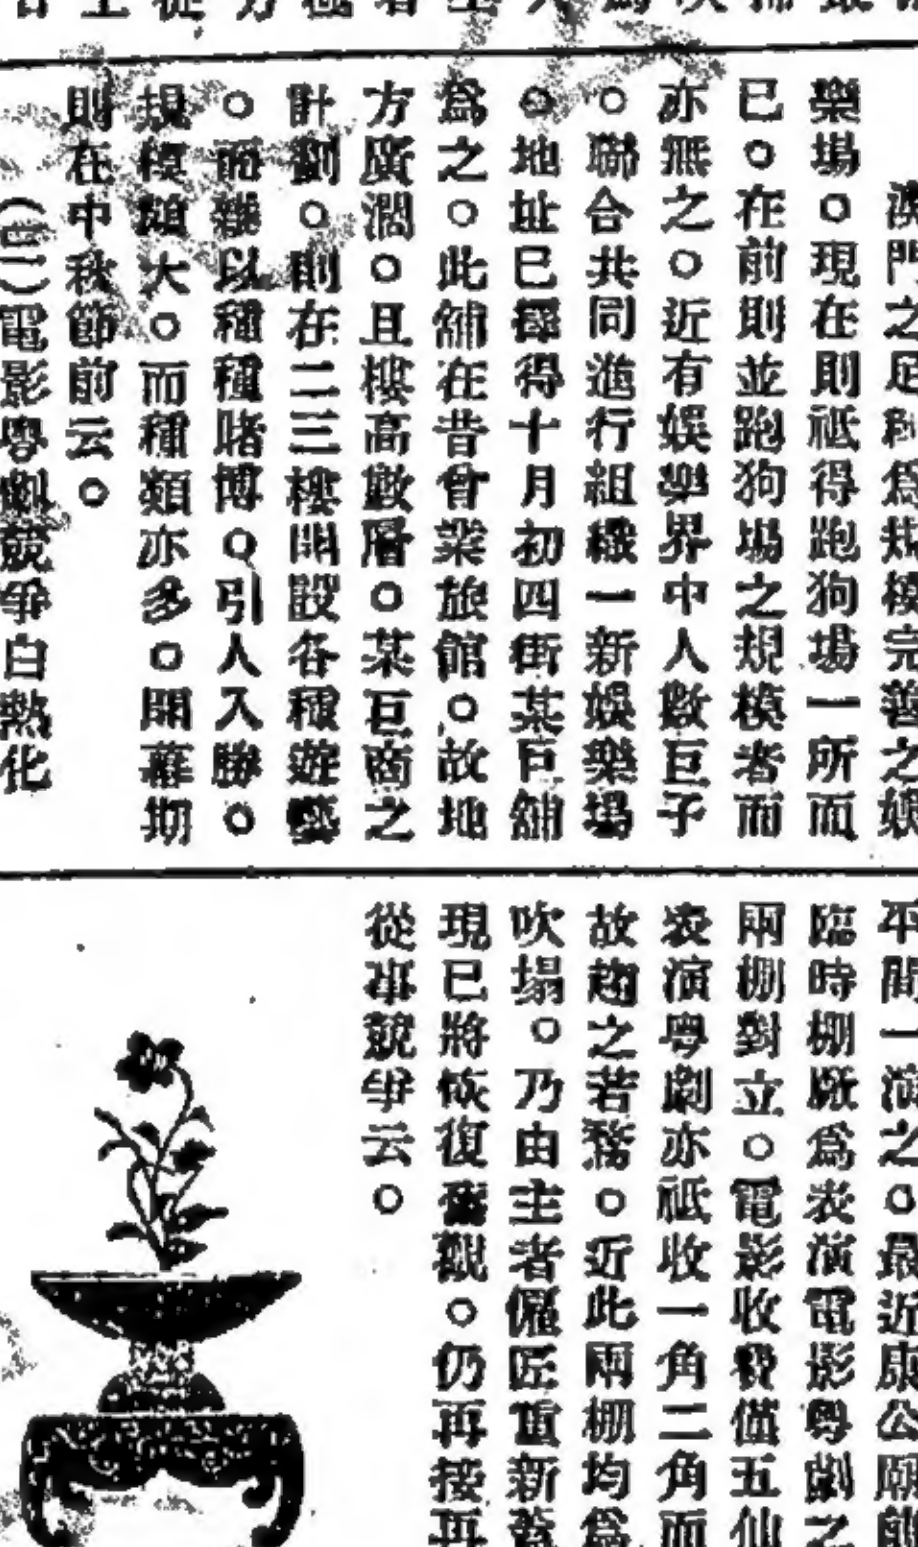 澳門之足稱爲規模完善之娛
樂場。現在則祗得跑狗場一所而
已。在前則並跑狗場之規模者而
亦無之。近有娛樂界中人數巨子
。聯合共同進行組織一新娛樂場
。地址已擇得十月初四街某巨舖
爲之。此舖在昔曾業旅館。故地
方廣濶。且樓高數層。某巨商之
計劃。則在二三樓開設各種遊藝
。而雜以種種賭博。引人入勝。
規模頗大。而種類亦多。開幕期
則在中秋節前云。
(三)電影粵劇競爭白熱化
平間一演之。最近康公廟前
臨時棚厰爲表演電影粤劇之
兩棚對立。電影收費僅五仙
表演粤劇亦祗收一角二角而
故趨之若鶩。近此兩棚均爲
吹塲。乃由主者僱匠重新蓋
現已將恢復舊觀。仍再接再
從事競爭云。